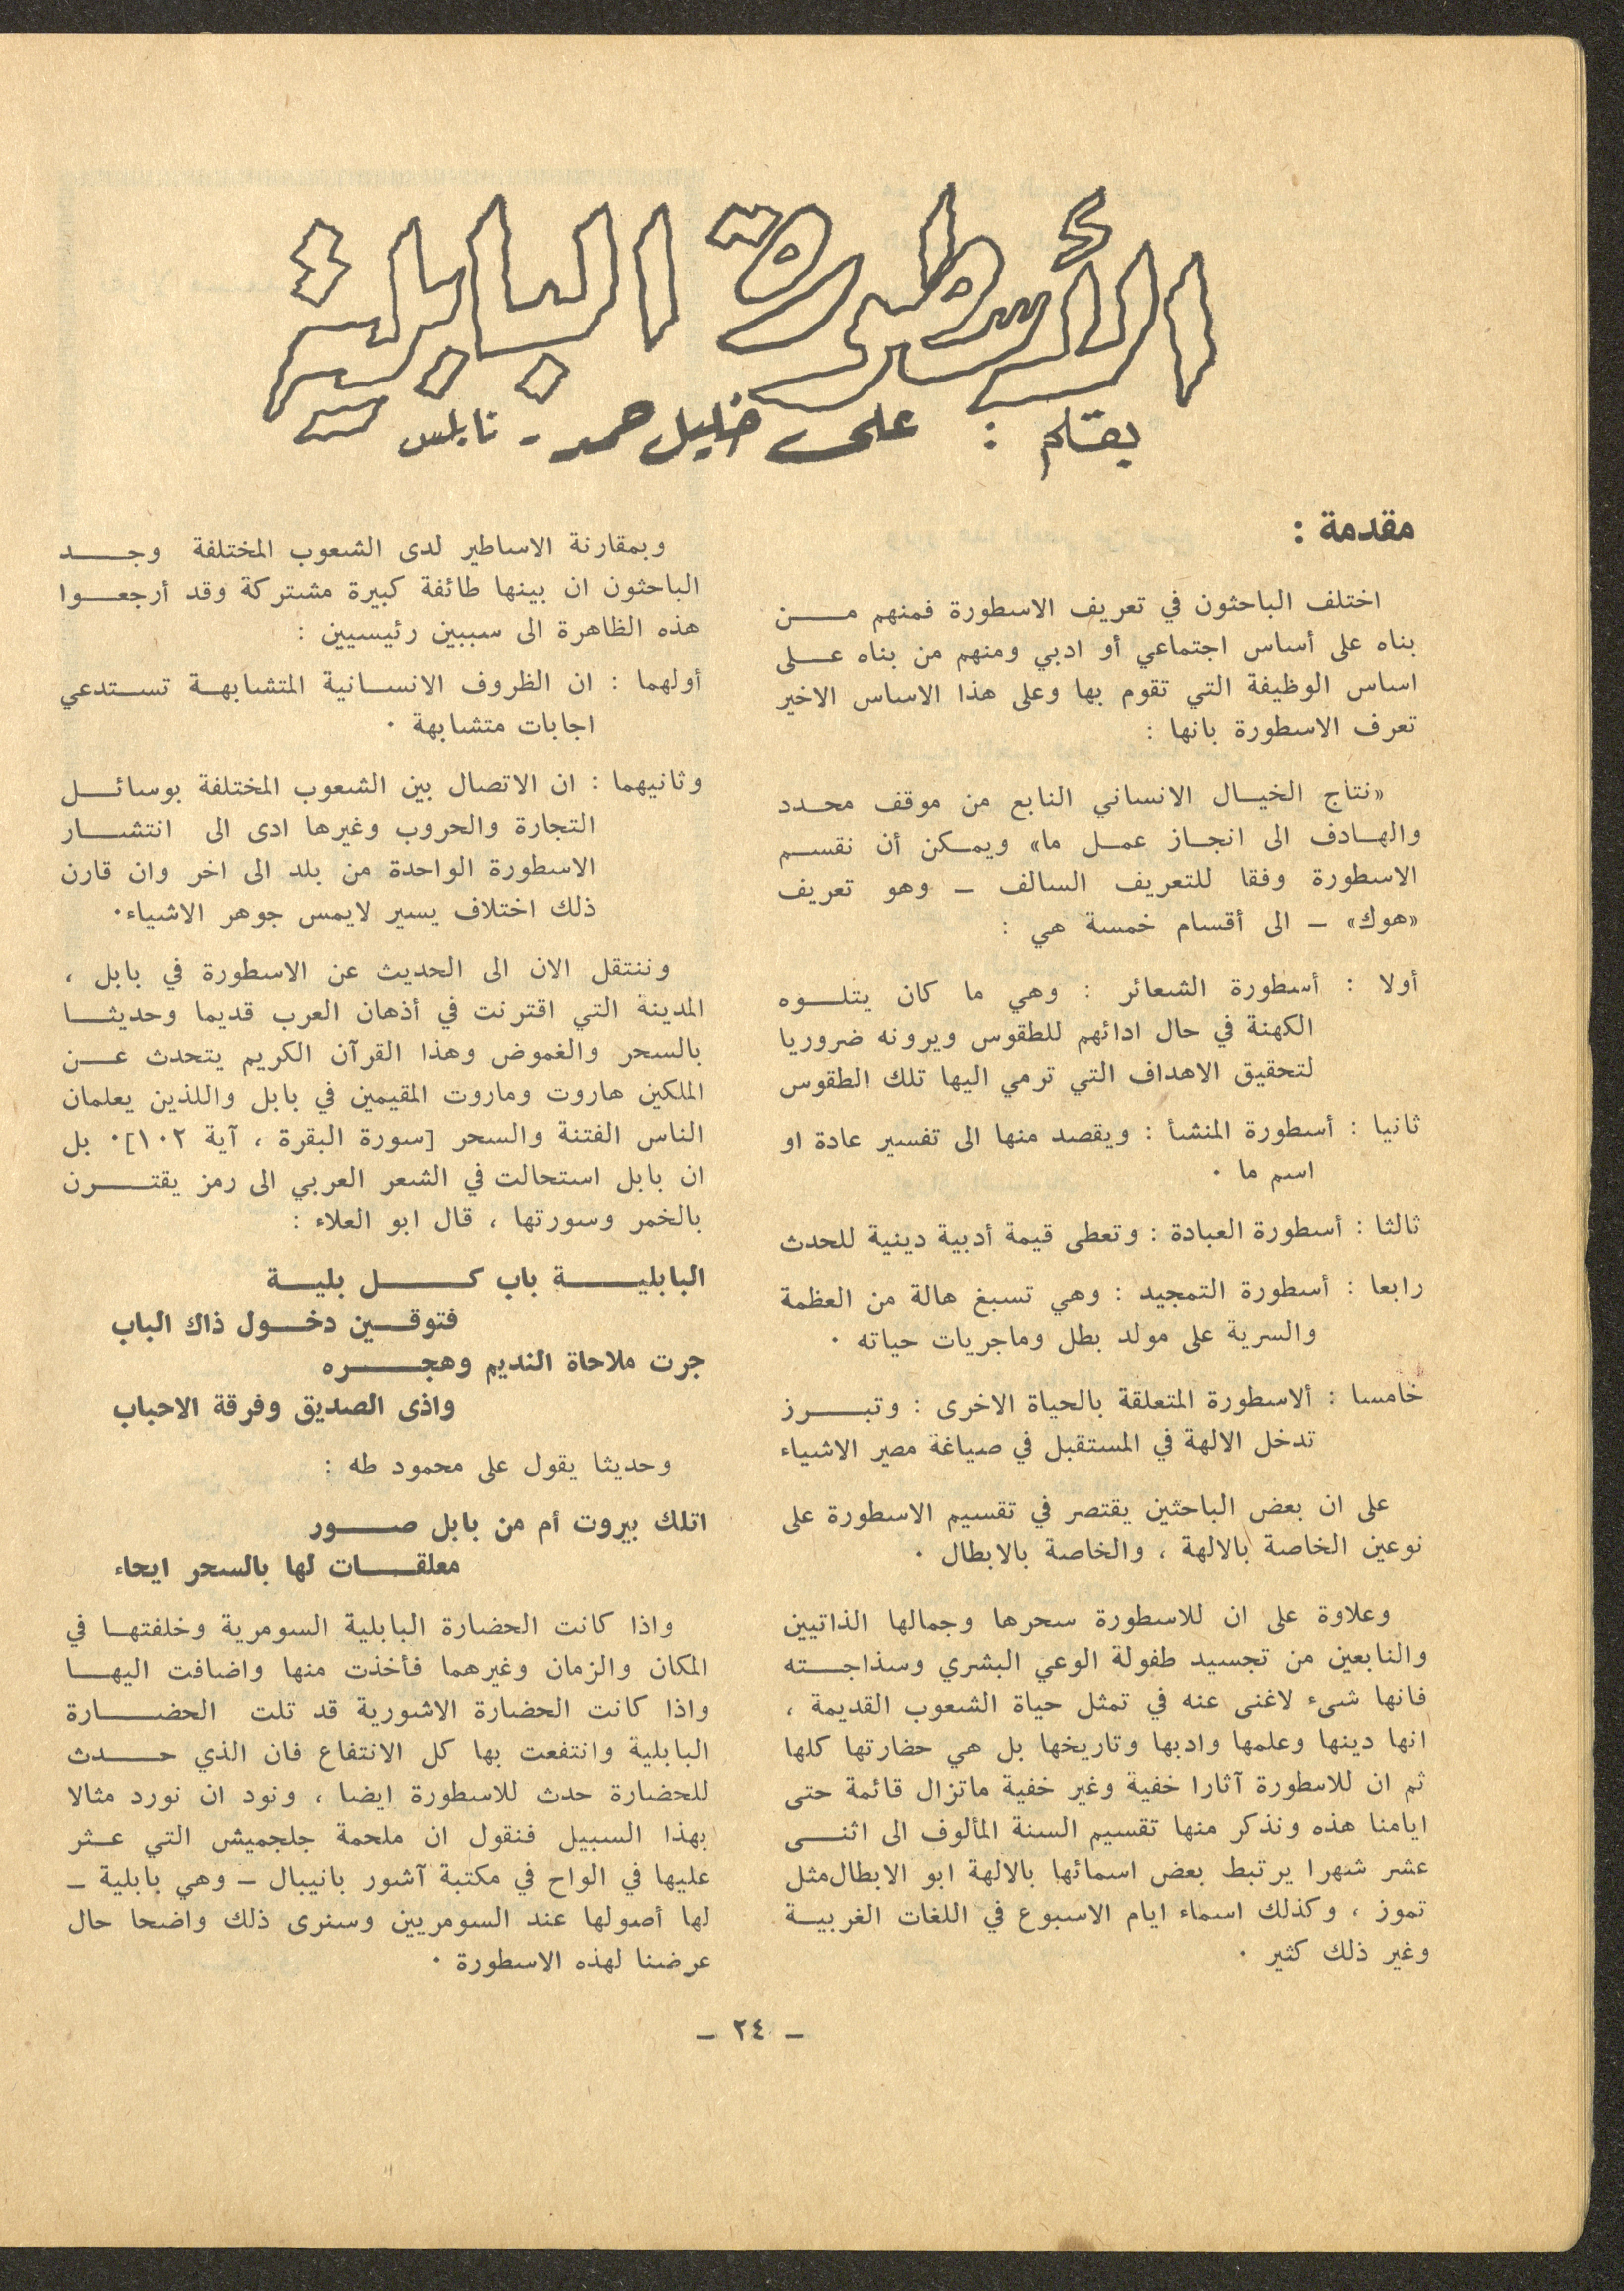 الأسطورة البابلية
بقلم : علي خليل حمد - نابلس
مقدمة :
اختلف الباحثون في تعريف الاسطورة فمنهم من
بناه على أساس اجتماعي أو ادبي ومنهم من بناه على
اساس الوظيفة التي تقوم بها وعلى هذا الاساس الاخير
تعرف الاسطورة بانها :
«نتاج الخيال الانساني النابع من موقف محدد
والهادف الى انجاز عمل ما» ويمكن أن نقسم
الاسطورة وفقا للتعريف السالف – وهو تعريف
«هوك» – الى أقسام خمسة هي :
أولا : أسطورة الشعائر : وهي ما كان يتلوه
الكهنة في حال ادائهم للطقوس ويرونه ضروريا
لتحقيق الاهداف التي ترمي اليها تلك الطقوس
ثانيا : أسطورة المنشأ : ويقصد منها الى تفسير عادة او
اسم ما ٠
ثالثا : أسطورة العبادة : وتعطى قيمة أدبية دينية للحدث
رابعا : أسطورة التمجيد : وهي تسبغ هالة من العظمة
والسرية على مولد بطل وماجريات حياته ٠
خامسا : ألاسطورة المتعلقة بالحياة الاخرى : وتبرز
تدخل الالهة في المستقبل في صياغة مصير الاشياء
على ان بعض الباحثين يقتصر في تقسيم الاسطورة على
نوعين الخاصة بالالهة ، والخاصة بالابطال ٠
وعلاوة على ان للاسطورة سحرها وجمالها الذاتيين
والنابعين من تجسيد طفولة الوعي البشري وسذاجته
فانها شىء لاغنى عنه في تمثل حياة الشعوب القديمة ،
انها دينها وعلمها وادبها وتاريخها بل هي حضارتها كلها
ثم ان للاسطورة آثارا خفية وغير خفية ماتزال قائمة حتى
ايامنا هذه ونذكر منها تقسيم السنة المألوف الى اثنى
عشر شهرا يرتبط بعض اسمائها بالالهة ابو الابطال مثل
تموز ، وكذلك اسماء ايام الاسبوع في اللغات الغربية
وغير ذلك كثير ٠
وبمقارنة الاساطير لدى الشعوب المختلفة وجد
الباحثون ان بينها طائفة كبيرة مشتركة وقد أرجعوا
هذه الظاهرة الى سببين رئيسيين :
أولهما : ان الظروف الانسانية المتشابهة تستدعي
اجابات متشابهة ٠
وثانيهما : ان الاتصال بين الشعوب المختلفة بوسائل
التجارة والحروب وغيرها ادى الى انتشار
الاسطورة الواحدة من بلد الى اخر وان قارن
ذلك اختلاف يسير لايمس جوهر الاشياء٠
وننتقل الان الى الحديث عن الاسطورة في بابل ،
المدينة التي اقترنت في أذهان العرب قديما وحديثا
بالسحر والغموض وهذا القرآن الكريم يتحدث عن
الملكين هاروت وماروت المقيمين في بابل واللذين يعلمان
الناس الفتنة والسحر [سورة البقرة ، آية ١٠٢]٠ بل
ان بابل استحالت في الشعر العربي الى رمز يقترن
بالخمر وسورتها ، قال ابو العلاء :
البابلية باب كل بلية
فتوقين دخول ذاك الباب
جرت ملاحاة النديم وهجره
واذى الصديق وفرقة الاحباب
وحديثا يقول على محمود طه :
اتلك بيروت أم من بابل صور
معلقات لها بالسحر ايحاء
واذا كانت الحضارة البابلية السومرية وخلفتها في
المكان والزمان وغيرهما فأخذت منها واضافت اليها
واذا كانت الحضارة الاشورية قد تلت الحضارة
البابلية وانتفعت بها كل الانتفاع فان الذي حدث
للحضارة حدث للاسطورة ايضا ، ونود ان نورد مثالا
بهذا السبيل فنقول ان ملحمة جلجميش التي عثر
عليها في الواح في مكتبة آشور بانيبال – وهي بابلية –
لها أصولها عند السومريين وسنرى ذلك واضحا حال
عرضنا لهذه الاسطورة ٠
– ٢٤ –